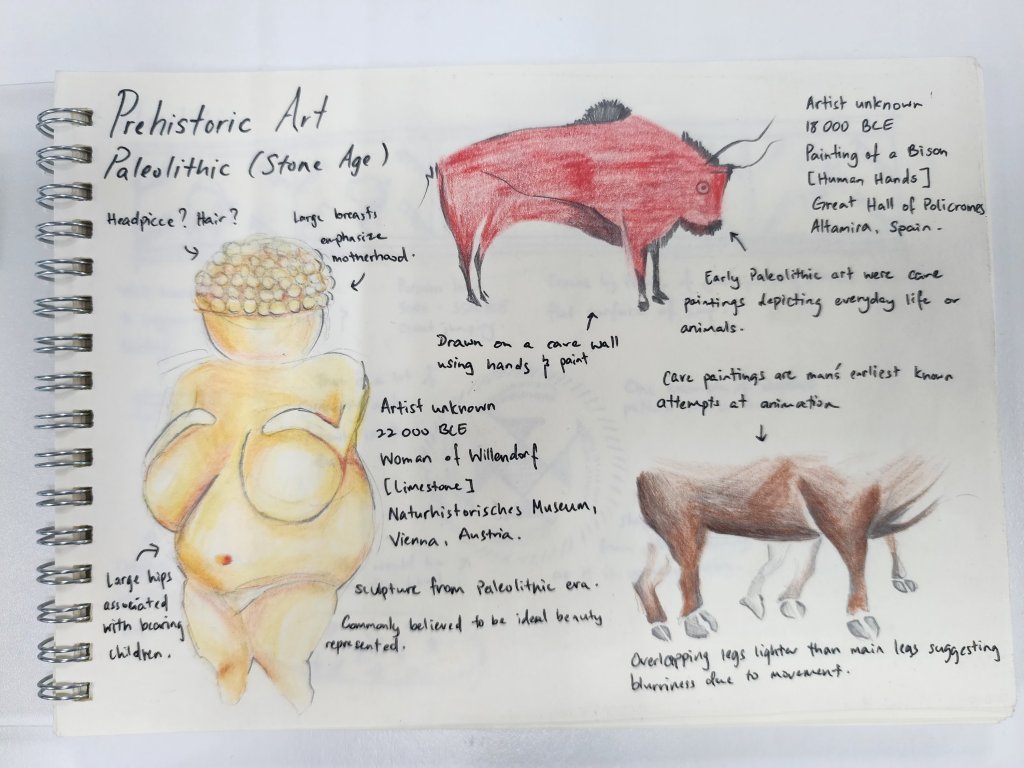 Prehistoric Art
Paleolithic (Stone Age)
Headpiece? Hair?
Large breasts
emphasize
motherhood.
Artist unknown
18 000 BCE
Painting of a Bison
[Human Hands]
Great Hall of Policromes
Altamira, Spain.
Early Paleolithic art were cave
paintings depicting everyday life or
animals.
Drawn on a cave wall
using hands & paint
Cave paintings are man's earliest known
attempts at animation
Artist unknown
22 000 BCE
Woman of Willendorf
[Limestone]
Naturhistorisches Museum,
Vienna, Austria.
Large hips
associated
with bearing
children.
Sculpture from Paleolithic era.
Commonly believed to be ideal beauty
represented.
Overlapping legs lighter than main legs suggesting
blurriness due to movement.